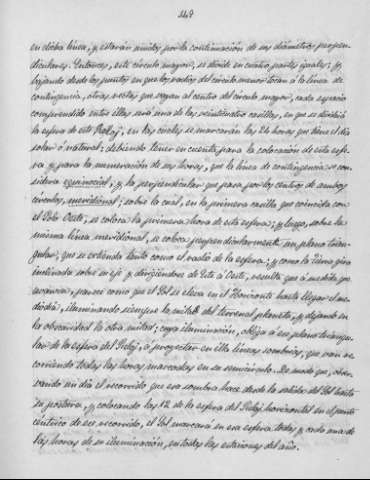 447
en dicha linea, y estarán unidos por la continuación de sus diámetros perpen-
diculares. Entonces, este círculo mayor, se divide en cuatro partes iguales; y,
bajando desde los puntos en que los radios del círculo menor tocan á la linea de
contingencia, otras rectas que vayan al centro del círculo mayor, cada espacio
comprendido entre ellas será una de las veinticuatro casillas, en que se dividirá
la esfera de este Reloj, en las cuales se marcarán las 24 horas que tiene el dia
solar ó natural: debiendo tener en cuenta, para la colocación de esta esfe-
ra y para la numeración de sus horas, que la linea de contingencia se con-
sidera equinocial, y la perpendicular que pasa por los centros de ambos
círculos, meridional; sobre la cual, en la primera casilla que coincida con
el Polo Oeste, se coloca la primera hora de esta esfera; y luego, sobre la
misma linea meridional, se coloca perpendicularmente un plano trian-
gular, que se estienda tanto como el radio de la esfera; y como la Tierra gira
inclinada sobre su eje y dirigiéndose de Este á Oeste, resulta que á medida que
avanza, parece como que el Sol se eleva en el Horizonte hasta llegar al me-
diodia, iluminando siempre la mitad del terreno planeta, y dejando en
la obscuridad la otra mitad; cuya iluminación, obliga á ese plano triangu-
lar de la esfera del Reloj, á proyectar en ella lineas sombrias, que van re-
corriendo todas las horas marcadas en su semicírculo. De modo que, obser-
vando un dia el recorrido que esa sombra hace desde la salida del Sol hasta
su postura, y colocando las 12 de la esfera del Reloj horizontal en el punto
céntrico de ese recorrido, el Sol marcará en esa esfera todas y cada una de
las horas de su iluminación, en todas las estaciones del año.